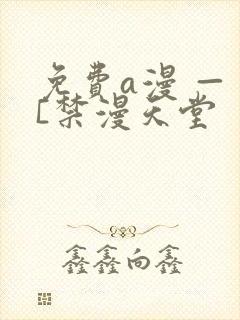 免費a漫 —
[禁漫天堂
鑫鑫向鑫